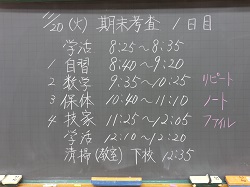 11/20 (火) 期末考査 1日目
学活 8:25〜8:35
1 自習 8:40〜9:20
2 数学 9:35〜10:25 リピート
3 保体 10:40〜11:10 ノート
4 技家 11:25〜12:05 ファイル
学活 12:10〜12:20
清掃(教室) 下校 12:35